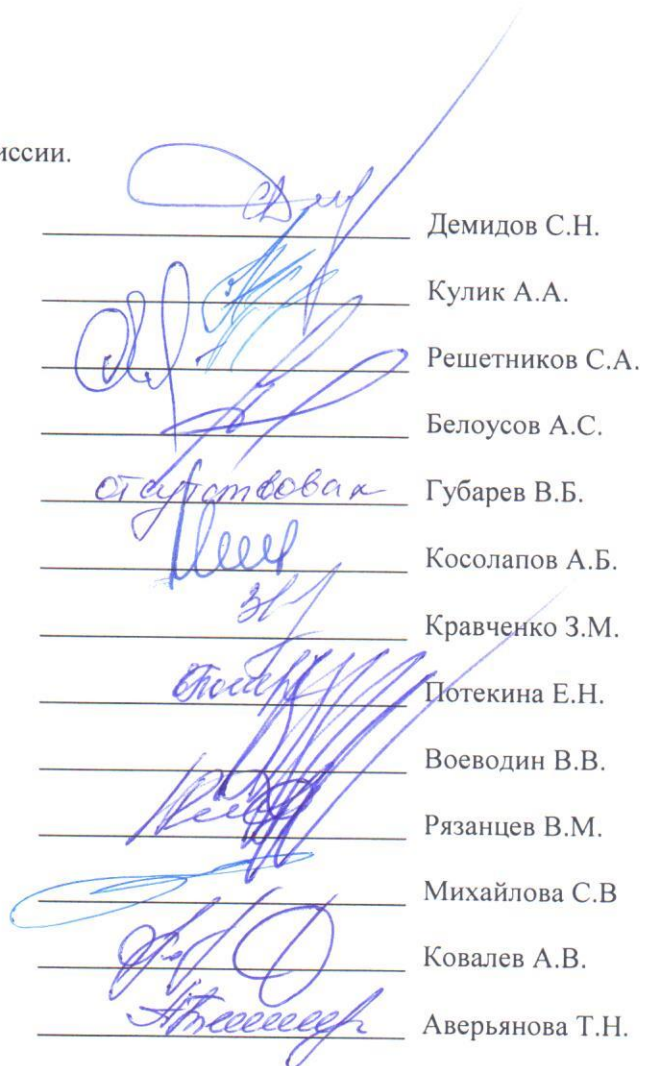 иссии.
Демидов С.Н.
Кулик А.А.
Решетников С.А.
Белоусов А.С.
отсутствовал Губарев В.Б.
Косолапов А.Б.
Кравченко З.М.
Потекина Е.Н.
Воеводин В.В.
Рязанцев В.М.
Михайлова С.В
Ковалев А.В.
Аверьянова Т.Н.